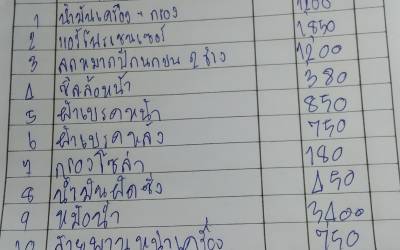 1 น้ำมันเครื่อง - กรอง 1200
2 แอร์โฟรเซนเซอร์ 1850
3 ลูกหมากปีกนกบน 2 ข้าง 1200
4 ซีลล้อหน้า 380
5 ผ้าเบรคหน้า 850
6 ผ้าเบรคหลัง 750
7 กรองโซล่า 180
8 น้ำมันเฟือง 450
9 หม้อน้ำ 3400
10 สายพานหน้าเครื่อง 750